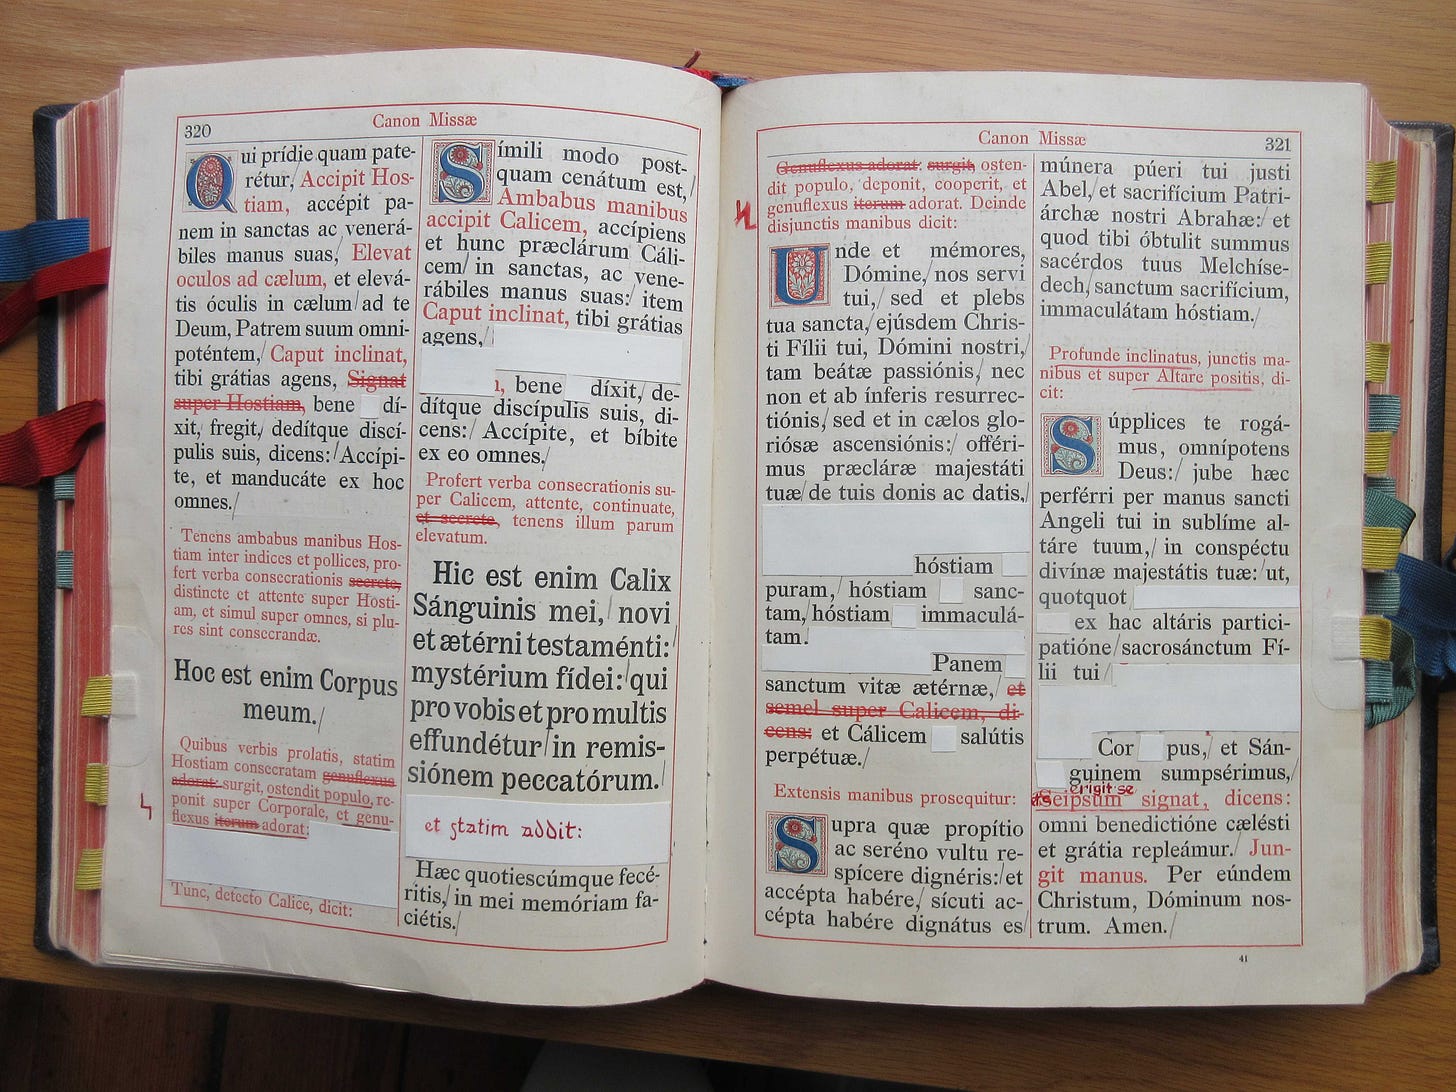 320
Canon Missæ
Qui prídie quam pate-
rétur, Accipit Hos-
tiam, accépit pa-
nem in sanctas ac venerá-
biles manus suas, Elevat
oculos ad cælum, et elevá-
tis óculis in cælum/ ad te
Deum, Patrem suum omni-
poténtem,/ Caput inclinat,
tibi grátias agens, Signat
super Hostiam, bene dí-
xit, fregit,/ dedítque discí-
pulis suis, dicens:/ Accípi-
te, et manducáte ex hoc
omnes./
Tenens ambabus manibus Hos-
tiam inter indices et pollices, pro-
fert verba consecrationis secrete,
distincte et attente super Hosti-
am, et simul super omnes, si plu-
res sint consecrandæ.
Hoc est enim Corpus
meum./
Quibus verbis prolatis, statim
Hostiam consecratam genuflexus
adorat: surgit, ostendit populo, re-
ponit super Corporale, et genu-
flexus iterum adorat:
Tunc, detecto Calice, dicit:
Símili modo post-
quam cenátum est,/
Ambabus manibus
accipit Calicem, accípiens
et hunc præclárum Cáli-
cem/ in sanctas, ac vene-
rábiles manus suas:/ item
Caput inclinat, tibi grátias
agens,/
, bene díxit,/ de-
dítque discípulis suis, di-
cens:/ Accípite, et bíbite
ex eo omnes./
Profert verba consecrationis su-
per Calicem, attente, continuate,
et secrete, tenens illum parum
elevatum.
Hic est enim Calix
Sánguinis mei,/ novi
et ætérni testaménti:/
mystérium fídei:/ qui
pro vobis et pro multis
effundétur/ in remis-
siónem peccatórum./
et statim addit:
Hæc quotiescúmque fecé-
ritis,/ in mei memóriam fa-
ciétis./
Canon Missæ
321
Genuflexus adorat: surgit, osten-
dit populo, deponit, cooperit, et
genuflexus iterum adorat. Deinde
disjunctis manibus dicit:
Unde et mémores,
Dómine,/ nos servi
tui,/ sed et plebs
tua sancta,/ ejúsdem Chris-
ti Fílii tui, Dómini nostri,/
tam beátæ passiónis,/ nec
non et ab ínferis resurrec-
tiónis,/ sed et in cælos glo-
riósæ ascensiónis:/ offéri-
mus præcláræ majestáti
tuæ/ de tuis donis ac datis,/
hóstiam
puram,/ hóstiam sanc-
tam,/ hóstiam immaculá-
tam.
Panem
sanctum vitæ ætérnæ,/ et
semel super Calicem, di-
cens: et Cálicem salútis
perpétuæ./
Extensis manibus prosequitur:
Supra quæ propítio
ac seréno vultu re-
spícere dignéris:/ et
accépta habére,/ sícuti ac-
cépta habére dignátus es/
múnera púeri tui justi
Abel,/ et sacrifícium Patri-
árchæ nostri Abrahæ:/ et
quod tibi óbtulit summus
sacérdos tuus Melchíse-
dech,/ sanctum sacrifícium,
immaculátam hóstiam./
Profunde inclinatus, junctis ma-
nibus et super Altare positis, di-
cit:
Súpplices te rogá-
mus, omnípotens
Deus:/ jube hæc
perférri per manus sancti
Angeli tui in sublíme al-
táre tuum,/ in conspéctu
divínæ majestátis tuæ:/ ut,
quotquot
ex hac altáris partici-
patióne/ sacrosánctum Fí-
lii tui/
Cor pus,/ et Sán-
guinem sumpsérimus,/
erigit se
Seipsum signat, dicens:
omni benedictióne cælésti
et grátia repleámur./ Jun-
git manus. Per eúndem
Christum, Dóminum nos-
trum. Amen./
41